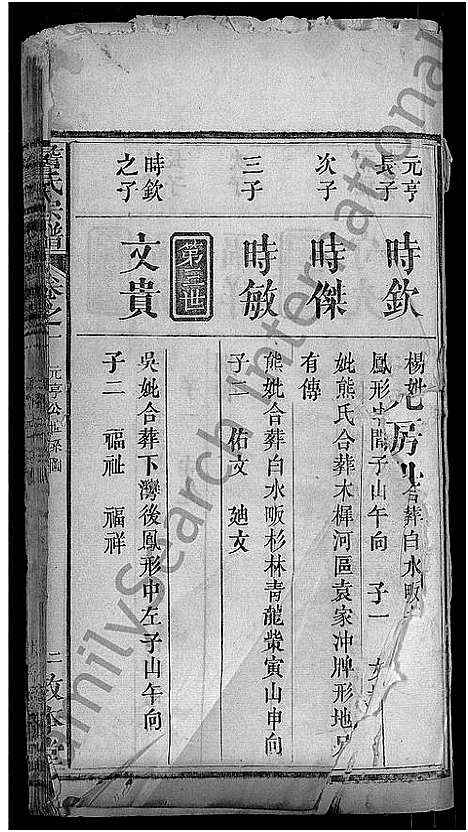 元亨長子
時欽
楊妣 合葬白水畈
鳳形 間子山午向 子一 文
次子
時傑
妣熊氏合葬木樨河區袁家沖牌形地
有傳
三子
時敏
熊妣合葬白水畈杉林青龍嘴寅山申向
子二 佑文 廸文
第三世
時欽之子
文貴
吳妣合葬下灣後鳳形中左子山午向
子二 福祉 福祥
氏宗譜
卷之一
元亨公世系圖
二
FamilySearch International